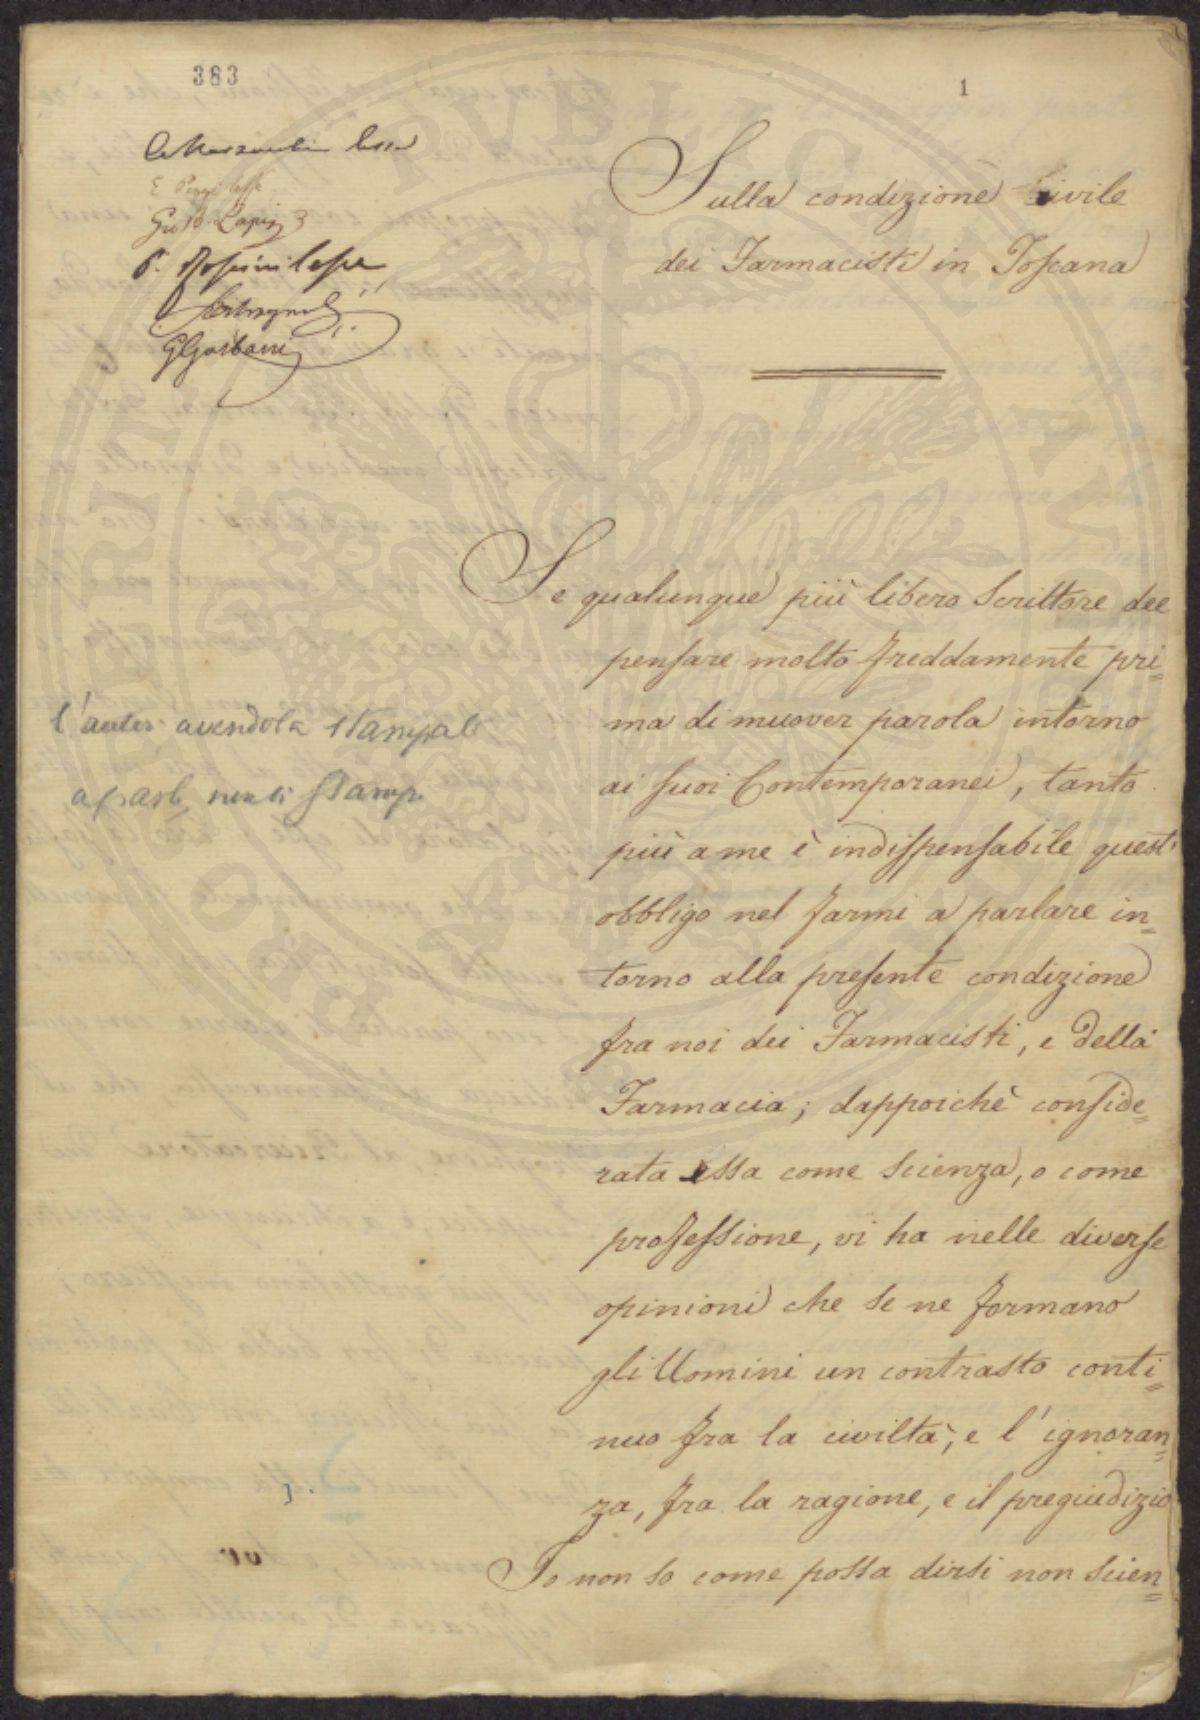 383
1
Sulla condizione Civile
dei Farmacisti in Toscana
Se qualunque più libero Scrittore dee
pensare molto freddamente pri=
ma di muover parola intorno
ai suoi Contemporanei, tanto
più a me è indispensabile quest'
obbligo nel farmi a parlare in=
torno alla presente condizione
fra noi dei Farmacisti, e della
Farmacia; dappoichè conside=
rata essa come Scienza, o come
professione, vi ha nelle diverse
opinioni che se ne formano
gli Uomini un contrasto conti=
nuo fra la civiltà, e l'ignoran=
za, fra la ragione, e il pregiudizio
Io non so come possa dirsi non scien=
l'autor avendola stampata
a parte non si stamp.